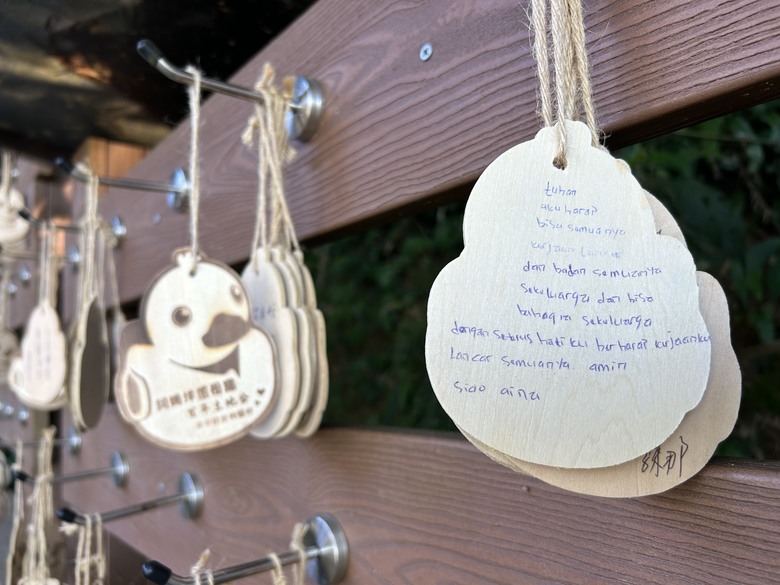 tuhan
aku harap
bisa semuanya
kerjaan lancar
dan badan semuanya
sekuluarga dan bisa
bahagia sekuluarga
dengan seterus hati ku berharap kerjaanku
Lancar semuanya amin
siao aina
百年土地公